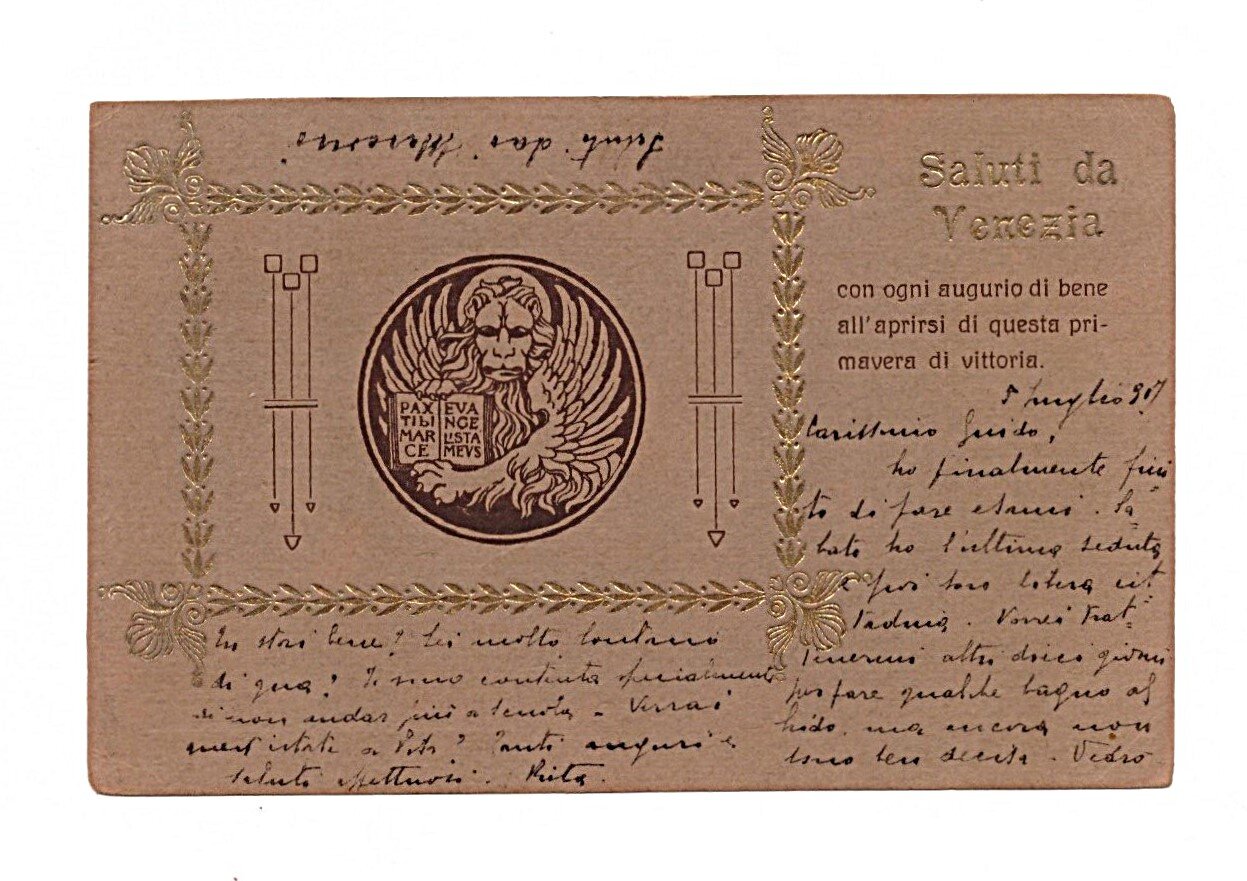 Saluti dai
Saluti da
Venezia
con ogni augurio di bene
all'aprirsi di questa pri-
mavera di vittoria.
PAX
TIBI
MAR
CE
EVA
NGE
LISTA
MEVS
5 luglio 907
Carissimo Guido,
ho finalmente fini
to di fare esami. Sa=
bato ho l'ultima seduta
e poi sono libera cit
tadina. Vorrei trat=
tenermi altri dieci giorni
per fare qualche bagno al
Lido, ma ancora non
sono ben decisa. Vedrò
Tu stai bene? Sei molto lontano
di qua? Io sono contenta specialmente
di non andar più a scuola. Verrai
quest'estate a ? Tanti auguri e
saluti affettuosi. Rita.